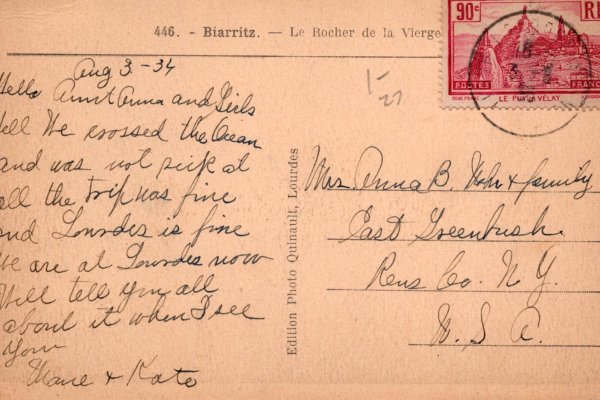 446. - Biarritz. — Le Rocher de la Vierge
90c
RF
POSTES FRANCE
LE PUY-EN-VELAY
Aug 3 - 34
Hello Aunt Anna and Girls
Well We crossed the Ocean
and was not sick at
all the trip was fine
and Lourdes is fine
We are at Lourdes now
Will tell you all
about it when I see
you
Marie + Kate
1-
27
Edition Photo Quinault, Lourdes
Mrs. Anna B. & family
East Greenbush
Rens Co. N. Y.
U. S. A.